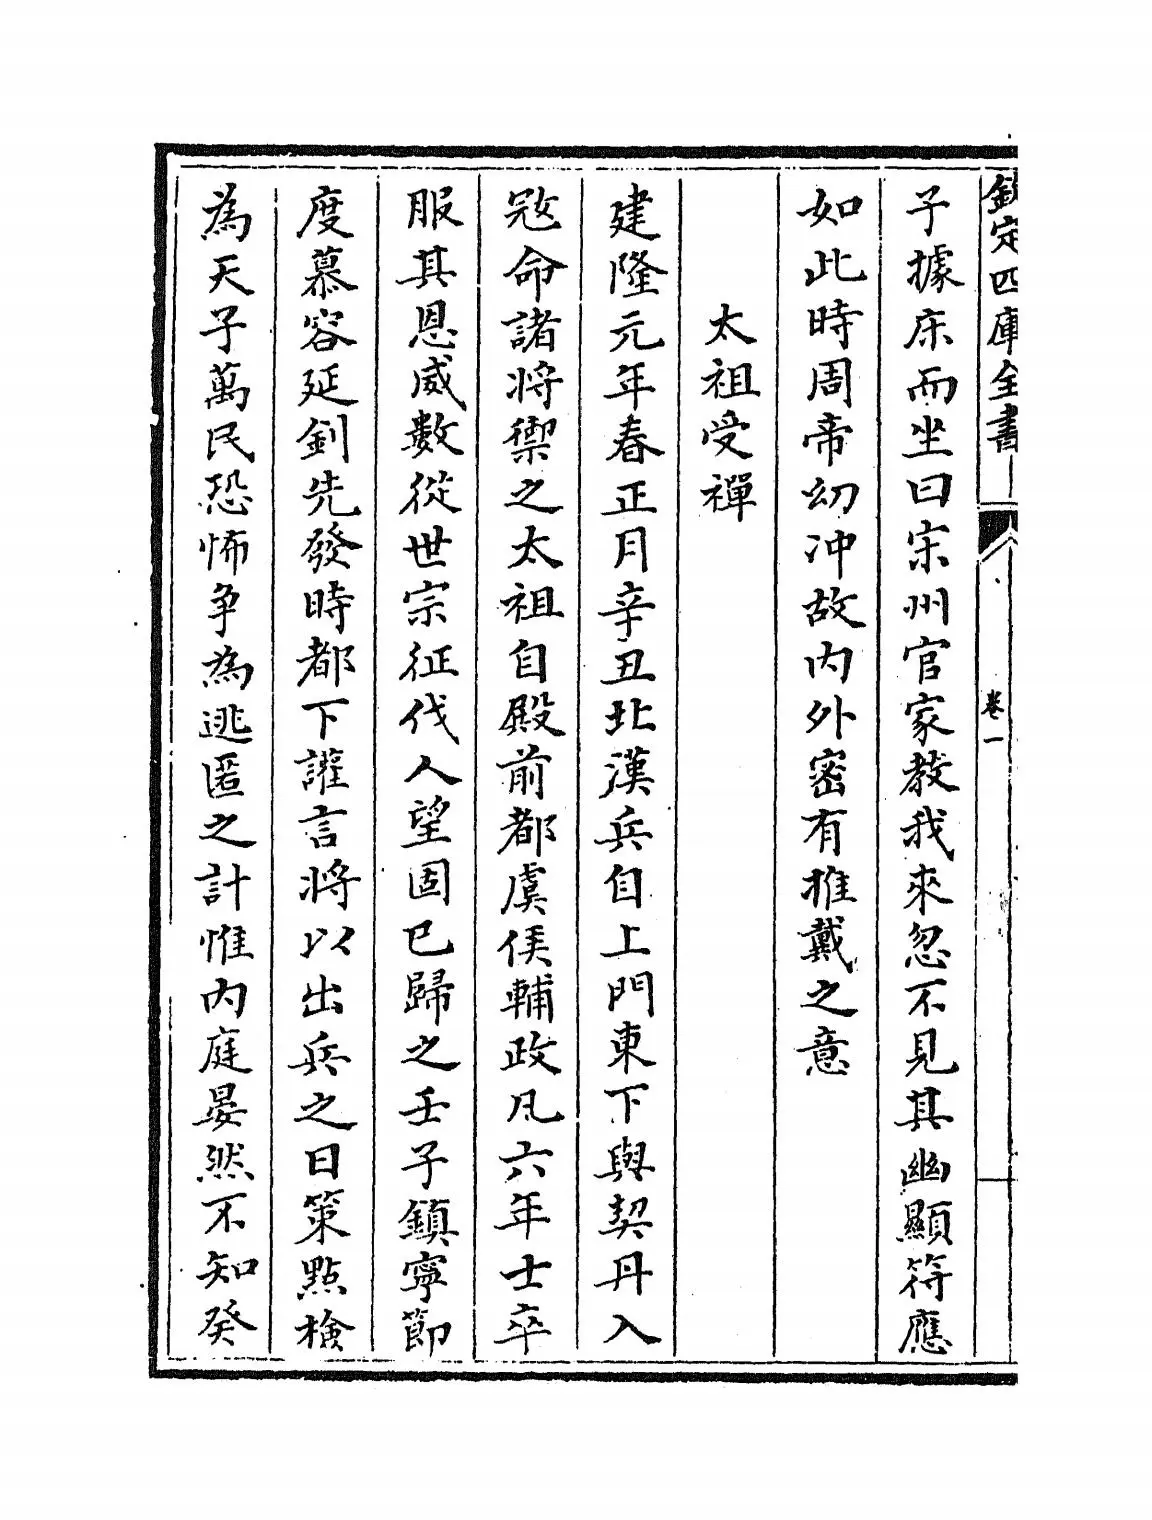 欽定四庫全書
卷一
子據床而坐曰宋州官家教我來忽不見其幽顯符應
如此時周帝幼冲故内外密有推戴之意
太祖受禪
建隆元年春正月辛丑北漢兵自上門東下與契丹入
冦命諸將禦之太祖自殿前都虞侯輔政凡六年士卒
服其恩威數從世宗征伐人望固已歸之壬子鎮寧節
度慕容延釗先發時都下讙言將以出兵之日策點檢
為天子萬民恐怖争為逃匿之計惟内庭晏然不知癸